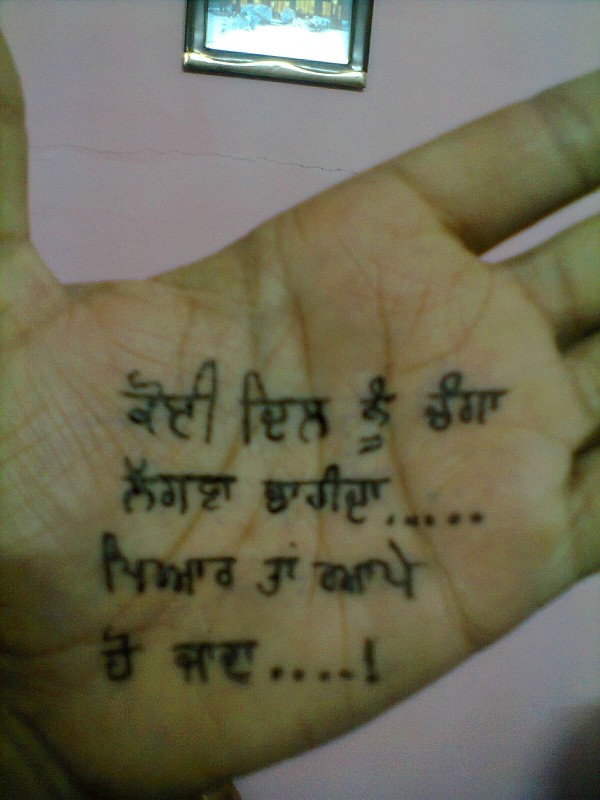 ਕੋਈ ਦਿਲ ਨੂੰ ਚੰਗਾ
ਲੱਗਣਾ ਚਾਹੀਦਾ......
ਪਿਆਰ ਤਾਂ ਆਪੇ
ਹੋ ਜਾਂਦਾ.....!